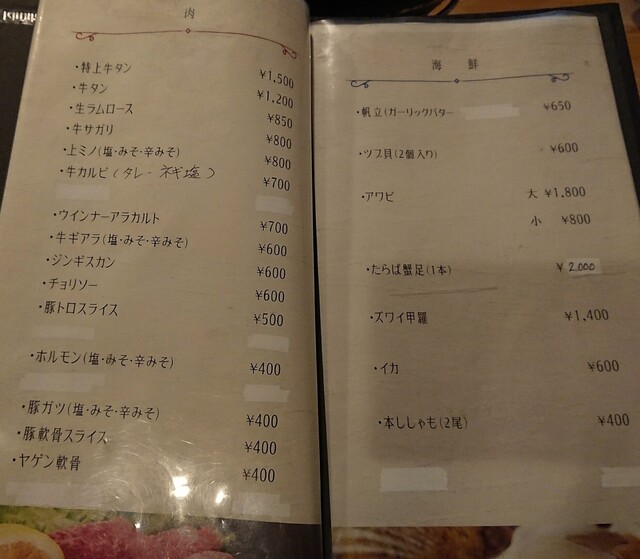 肉
・特上牛タン ¥1,500
・牛タン ¥1,200
・生ラムロース ¥850
・牛サガリ ¥800
・上ミノ(塩・みそ・辛みそ) ¥800
・牛カルビ(タレ・ネギ塩) ¥700
・ウインナーアラカルト ¥700
・牛ギアラ(塩・みそ・辛みそ) ¥600
・ジンギスカン ¥600
・チョリソー ¥600
・豚トロスライス ¥500
・ホルモン(塩・みそ・辛みそ) ¥400
・豚ガツ(塩・みそ・辛みそ) ¥400
・豚軟骨スライス ¥400
・ヤゲン軟骨 ¥400
海鮮
・帆立(ガーリックバター ¥650
・ツブ貝(2個入り) ¥600
・アワビ 大 ¥1,800
小 ¥800
・たらば蟹足(1本) ¥2,000
・ズワイ甲羅 ¥1,400
・イカ ¥600
・本ししゃも(2尾) ¥400